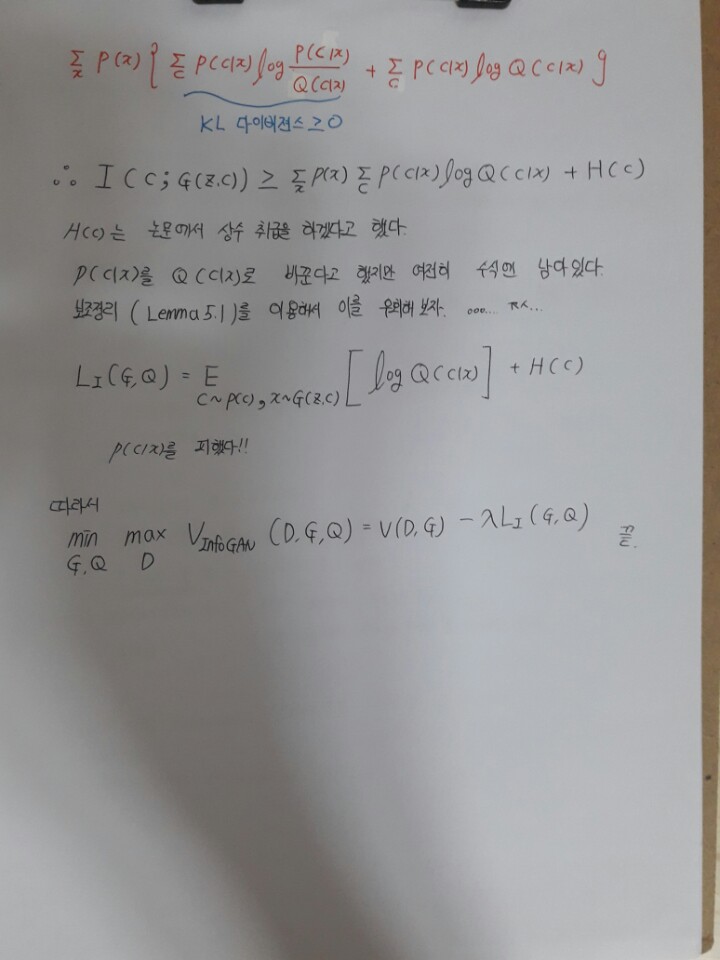 Σ_x P(x) { Σ_c P(c|x) log P(c|x)/Q(c|x) + Σ_c P(c|x) log Q(c|x) }
KL 다이버전스 ≥ 0
∴ I(c; G(z,c)) ≥ Σ_x P(x) Σ_c P(c|x) log Q(c|x) + H(c)
H(c)는 논문에서 상수 취급을 하겠다고 했다.
P(c|x)를 Q(c|x)로 바꾼다고 했지만 여전히 수식엔 남아있다.
보조정리 (Lemma 5.1)를 이용해서 이를 우회해보자. ooo....
L_I(G,Q) = E_{c~p(c), x~G(z,c)} [ log Q(c|x) ] + H(c)
P(c|x)를 피했다!!
따라서
min_{G,Q} max_D V_{InfoGAN} (D,G,Q) = V(D,G) - λL_I(G,Q) 끝.